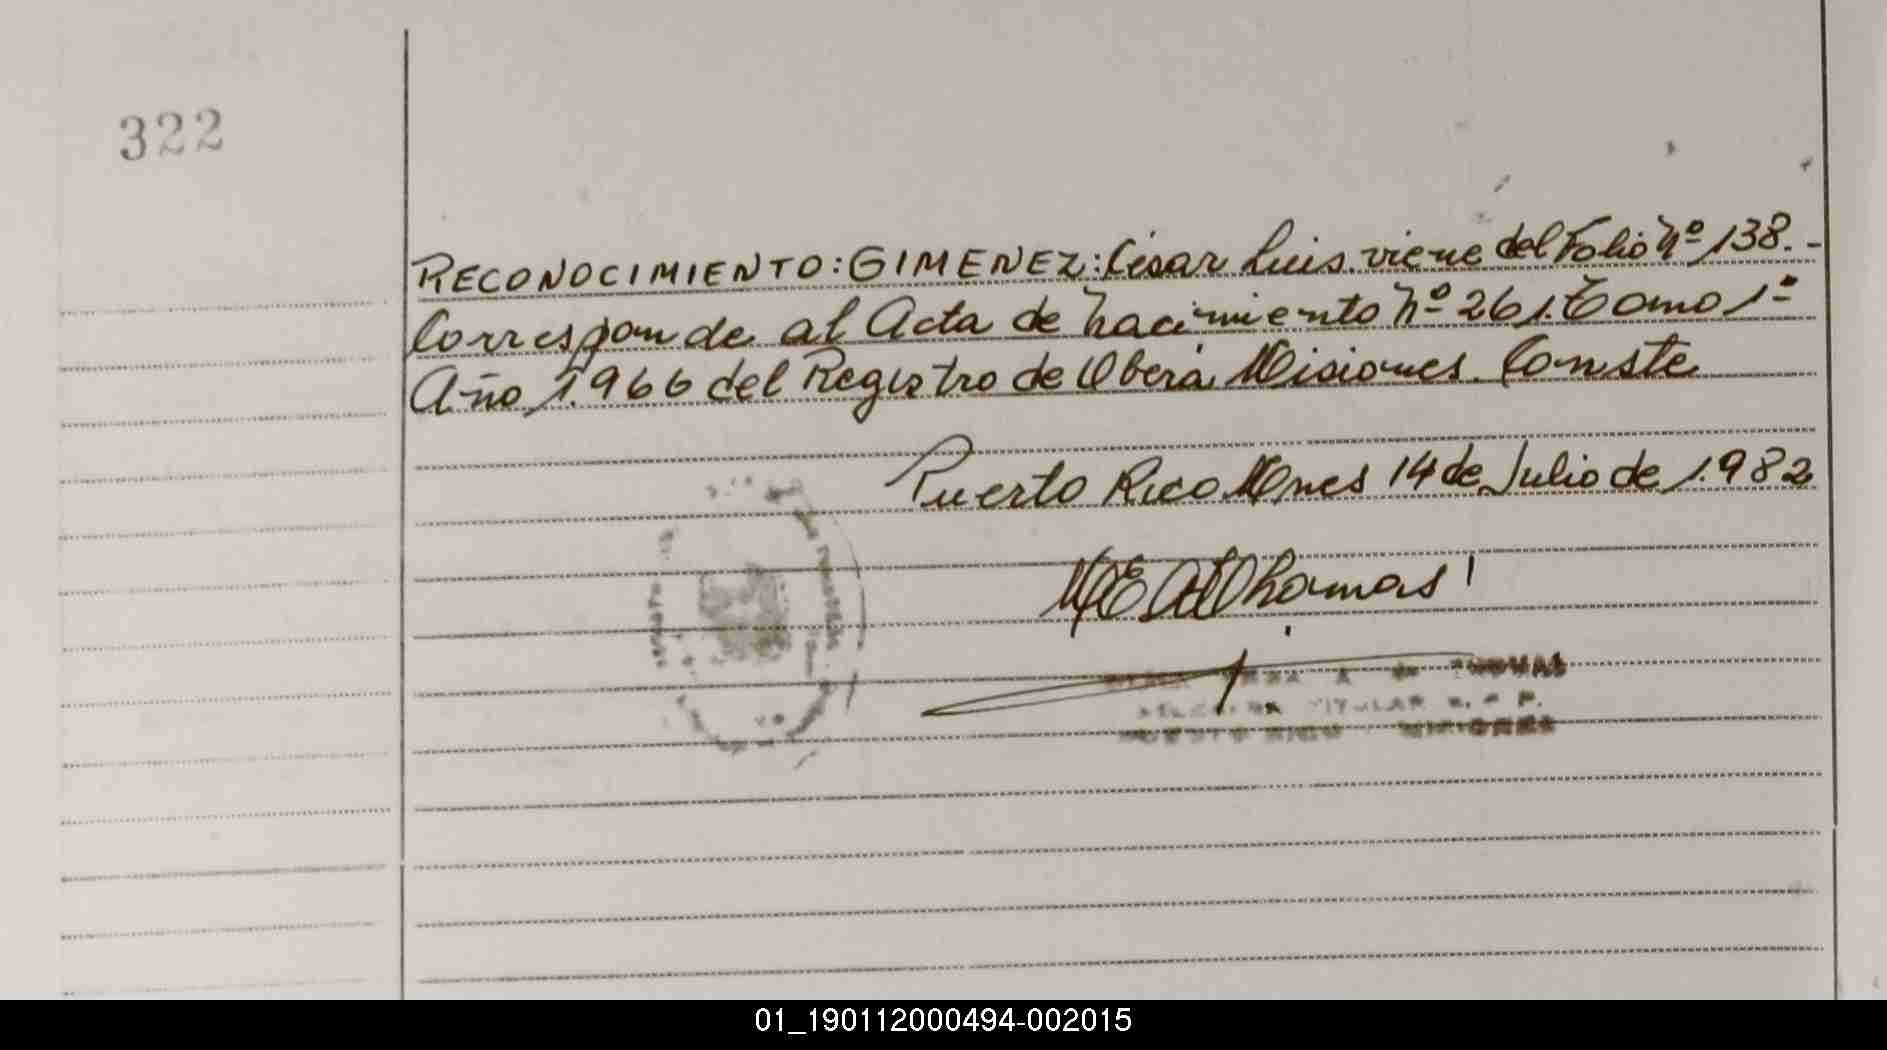 322
RECONOCIMIENTO: GIMENEZ: César Luis. viene del Folio Nº 138.-
Corresponde al Acta de Nacimiento Nº 261. Tomo 1º
Año 1.966 del Registro de Oberá Misiones. Conste
Puerto Rico Mnes 14 de Julio de 1.982
Thomas
THOMAS
TITULAR
PUERTO RICO MISIONES
01_190112000494-002015